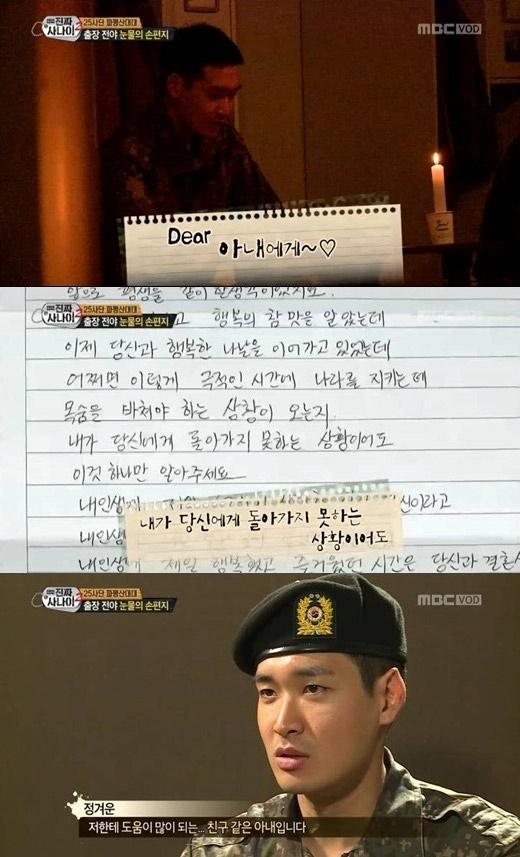 진짜 사나이2
25사단 파평산대대
출장 전야 눈물의 손편지
MBC VOD
Dear 아내에게~♡
앞으로 평생을 같이 한생각이있지요.
진짜 사나이2
25사단 파평산대대
출장 전야 눈물의 손편지
고 행복의 참 맛을 알았는데
이제 당신과 행복한 나날을 이어가고 있었는데
어쩌면 이렇게 극적인 시간에 나라를 지키는데
목숨을 바쳐야 하는 상황이 오는지.
내가 당신에게 돌아가지 못하는 상황이어도
이것 하나만 알아주세요
내인생에
신이라고
내인생
내가 당신에게 돌아가지 못하는
상황이어도
내인생에 제일 행복했고 즐거웠던 시간은 당신과 결혼
진짜 사나이2
25사단 파평산대대
출장 전야 눈물의 손편지
MBC VOD
정겨운
저한테 도움이 많이 되는... 친구 같은 아내입니다